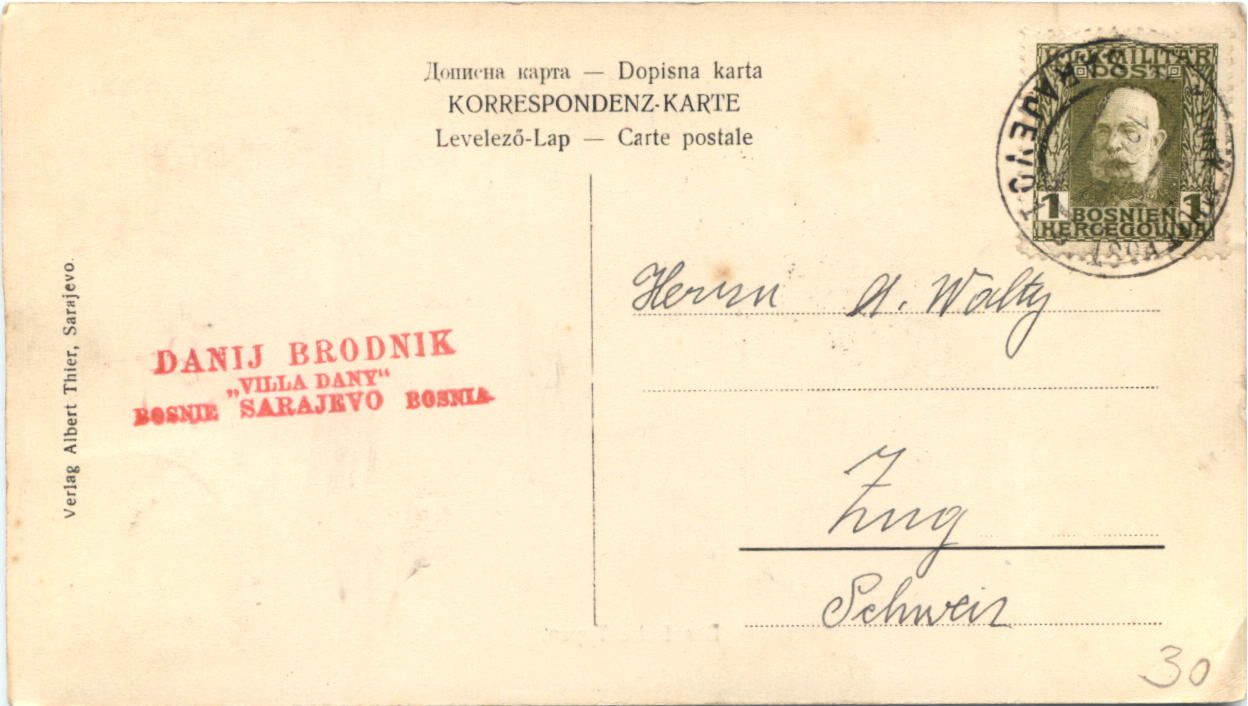 Дописна карта — Dopisna karta
KORRESPONDENZ-KARTE
Levelező-Lap — Carte postale
K.u.K. MILITÄR
POST
1 BOSNIEN 1
HERCEGOVINA
SARAJEVO
Verlag Albert Thier, Sarajevo.
DANIJ BRODNIK
„VILLA DANY“
BOSNIE SARAJEVO BOSNIA
Herrn A. Walty
Zug
Schweiz
30